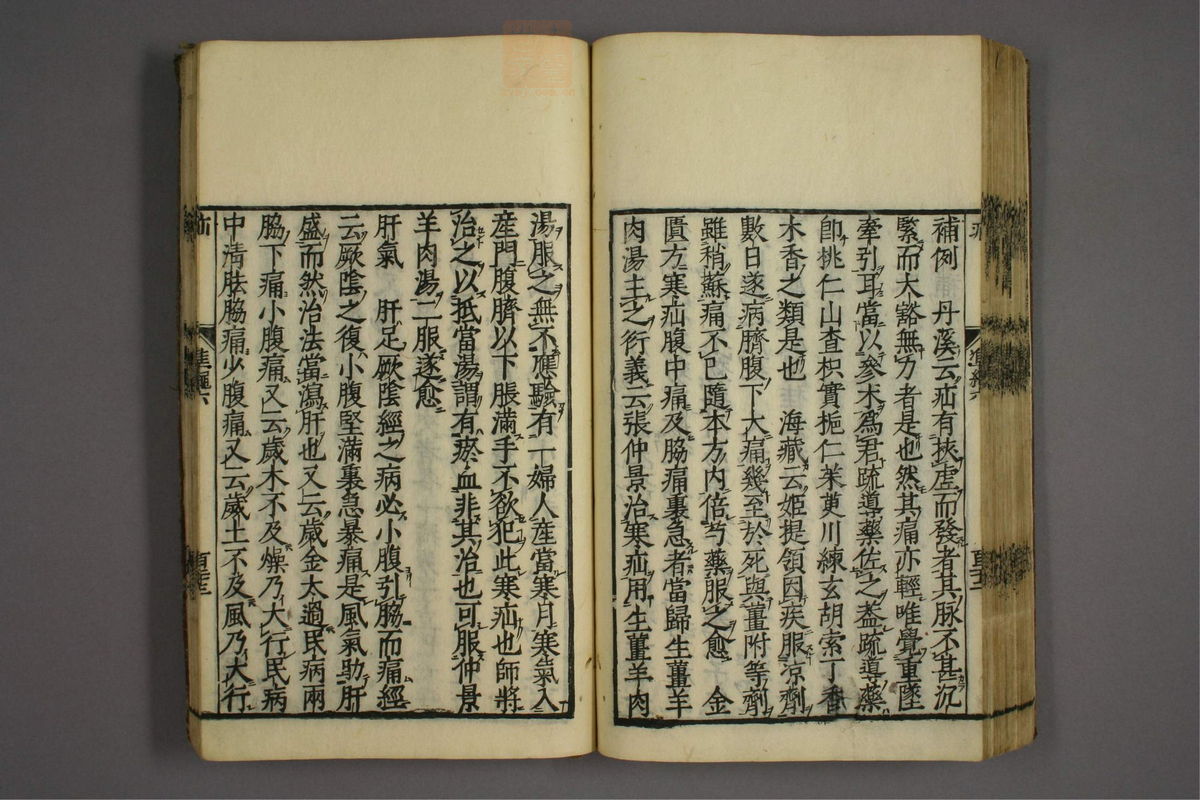 補例　丹溪云疝有挾虛而發者其脉不甚沉
緊而大豁無力者是也然其痛亦輕唯覺重墜
牽引耳當以參朮爲君疏導藥佐之盖疏導藥
即桃仁山查枳實梔仁茱萸川練玄胡索丁香
木香之類是也　海藏云姬提領因疾服凉劑
數日遂病臍腹下大痛幾至於死與薑附等劑
雖稍蘇痛不已隨本方内倍芍藥服之愈　金
匱方寒疝腹中痛及脇痛裏急者當歸生薑羊
肉湯主之衍義云張仲景治寒疝用生薑羊肉
湯服之無不應驗有一婦人産當寒月寒氣入
産門腹臍以下脹滿手不欲犯此寒疝也師將
治之以抵當湯謂有瘀血非其治也可服仲景
羊肉湯二服遂愈
肝氣　肝足厥陰經之病必小腹引脇而痛經
云厥陰之復小腹堅滿裏急暴痛是風氣助肝
盛而然治法當瀉肝也又云歲金太過民病兩
脇下痛小腹痛又云歲木不及燥乃大行民病
中清胠脇痛少腹痛又云歲土不及風乃大行
疝
準繩六